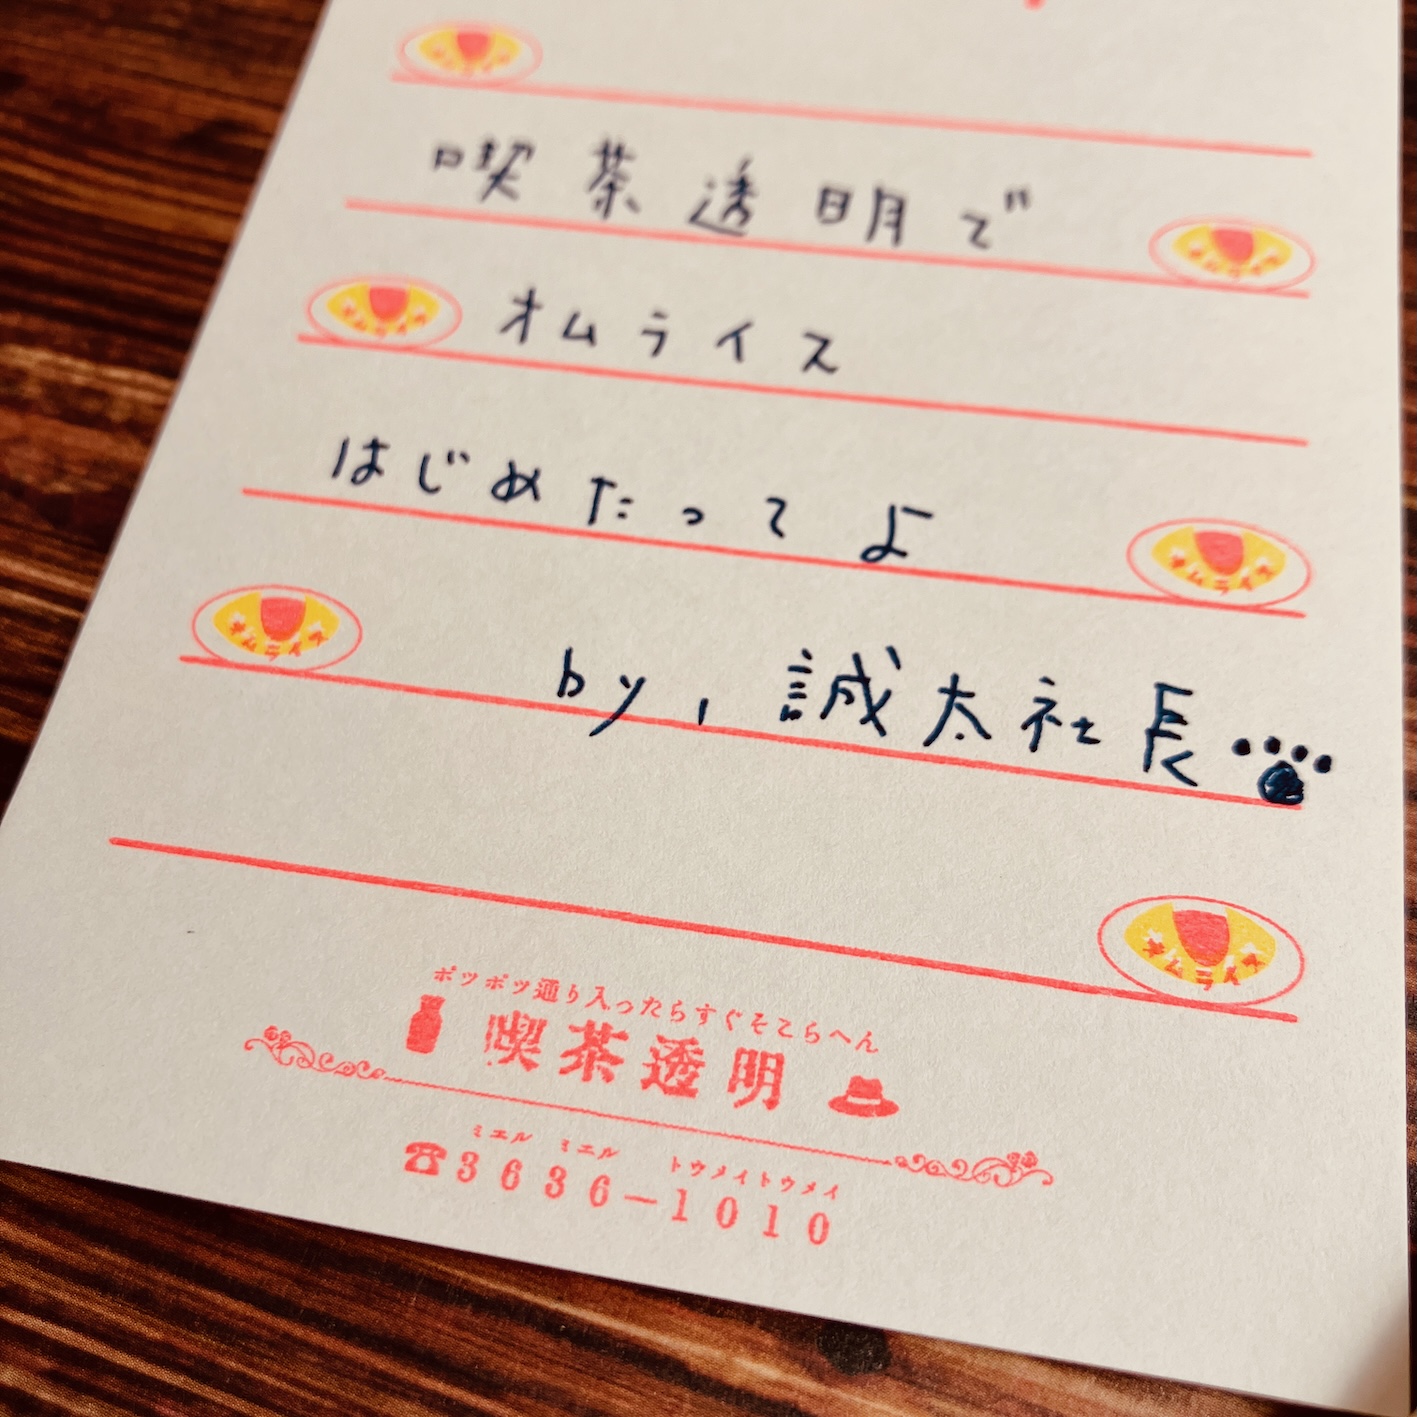 オムライス
喫茶透明で
オムライス
オムライス オムライス
はじめたってよ
オムライス
オムライス
by, 誠太社長
オムライス
ポツポツ通り入ったらすぐそこらへん
喫茶透明
ミエル ミエル トウメイトウメイ
☎3636-1010